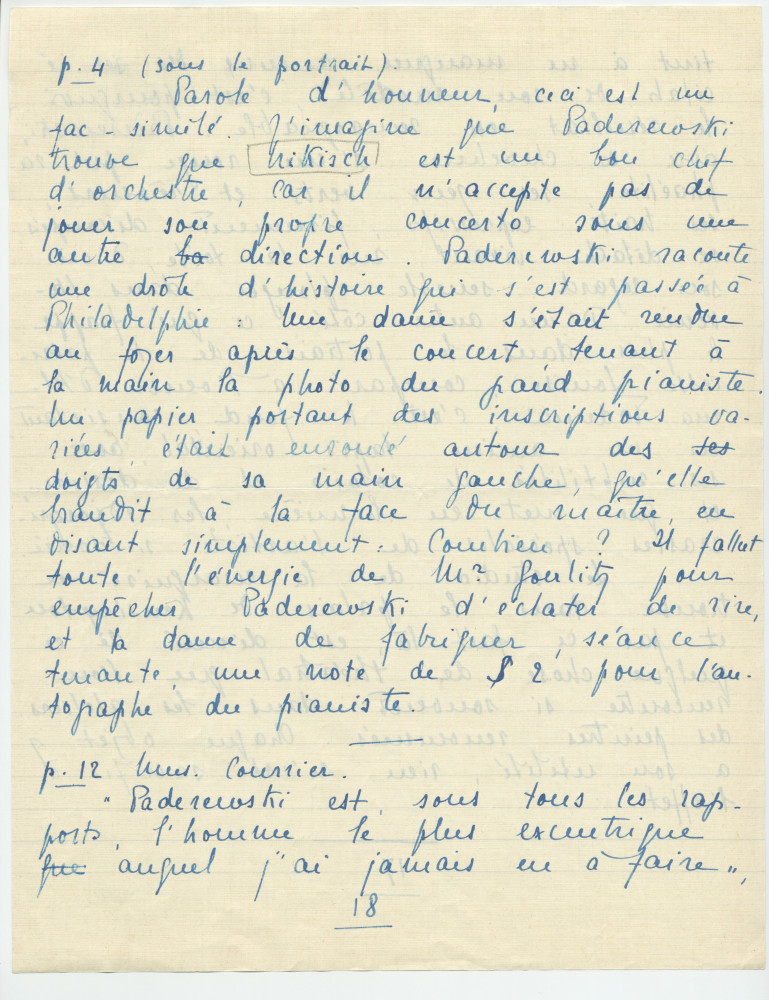 p. 4 (sous le portrait).
Parole d'honneur, ceci est un
fac-similé. J'imagine que Paderewski
trouve que Nikisch est un bon chef
d'orchestre, car il n'accepte pas de
jouer son propre concerto sous une
autre la direction. Paderewski raconte
une drôle d'histoire qui s'est passée à
Philadelphie : Une dame s'était rendue
au foyer après le concert tenant à
la main la photo du grand pianiste.
Un papier portant des inscriptions va-
riées était enroulé autour des ses
doigts de sa main gauche, qu'elle
brandit à la face du maître, en
disant simplement : Combien ? Il fallut
toute l'énergie de Mr Goerlitz pour
empêcher Paderewski d'éclater de rire,
et la dame de fabriquer, séance
tenante, une note de $ 2 pour l'au-
tographe du pianiste.
p. 12 Mus. Courrier.
"Paderewski est, sous tous les rap-
ports, l'homme le plus excentrique
que auquel j'ai jamais eu à faire",
18